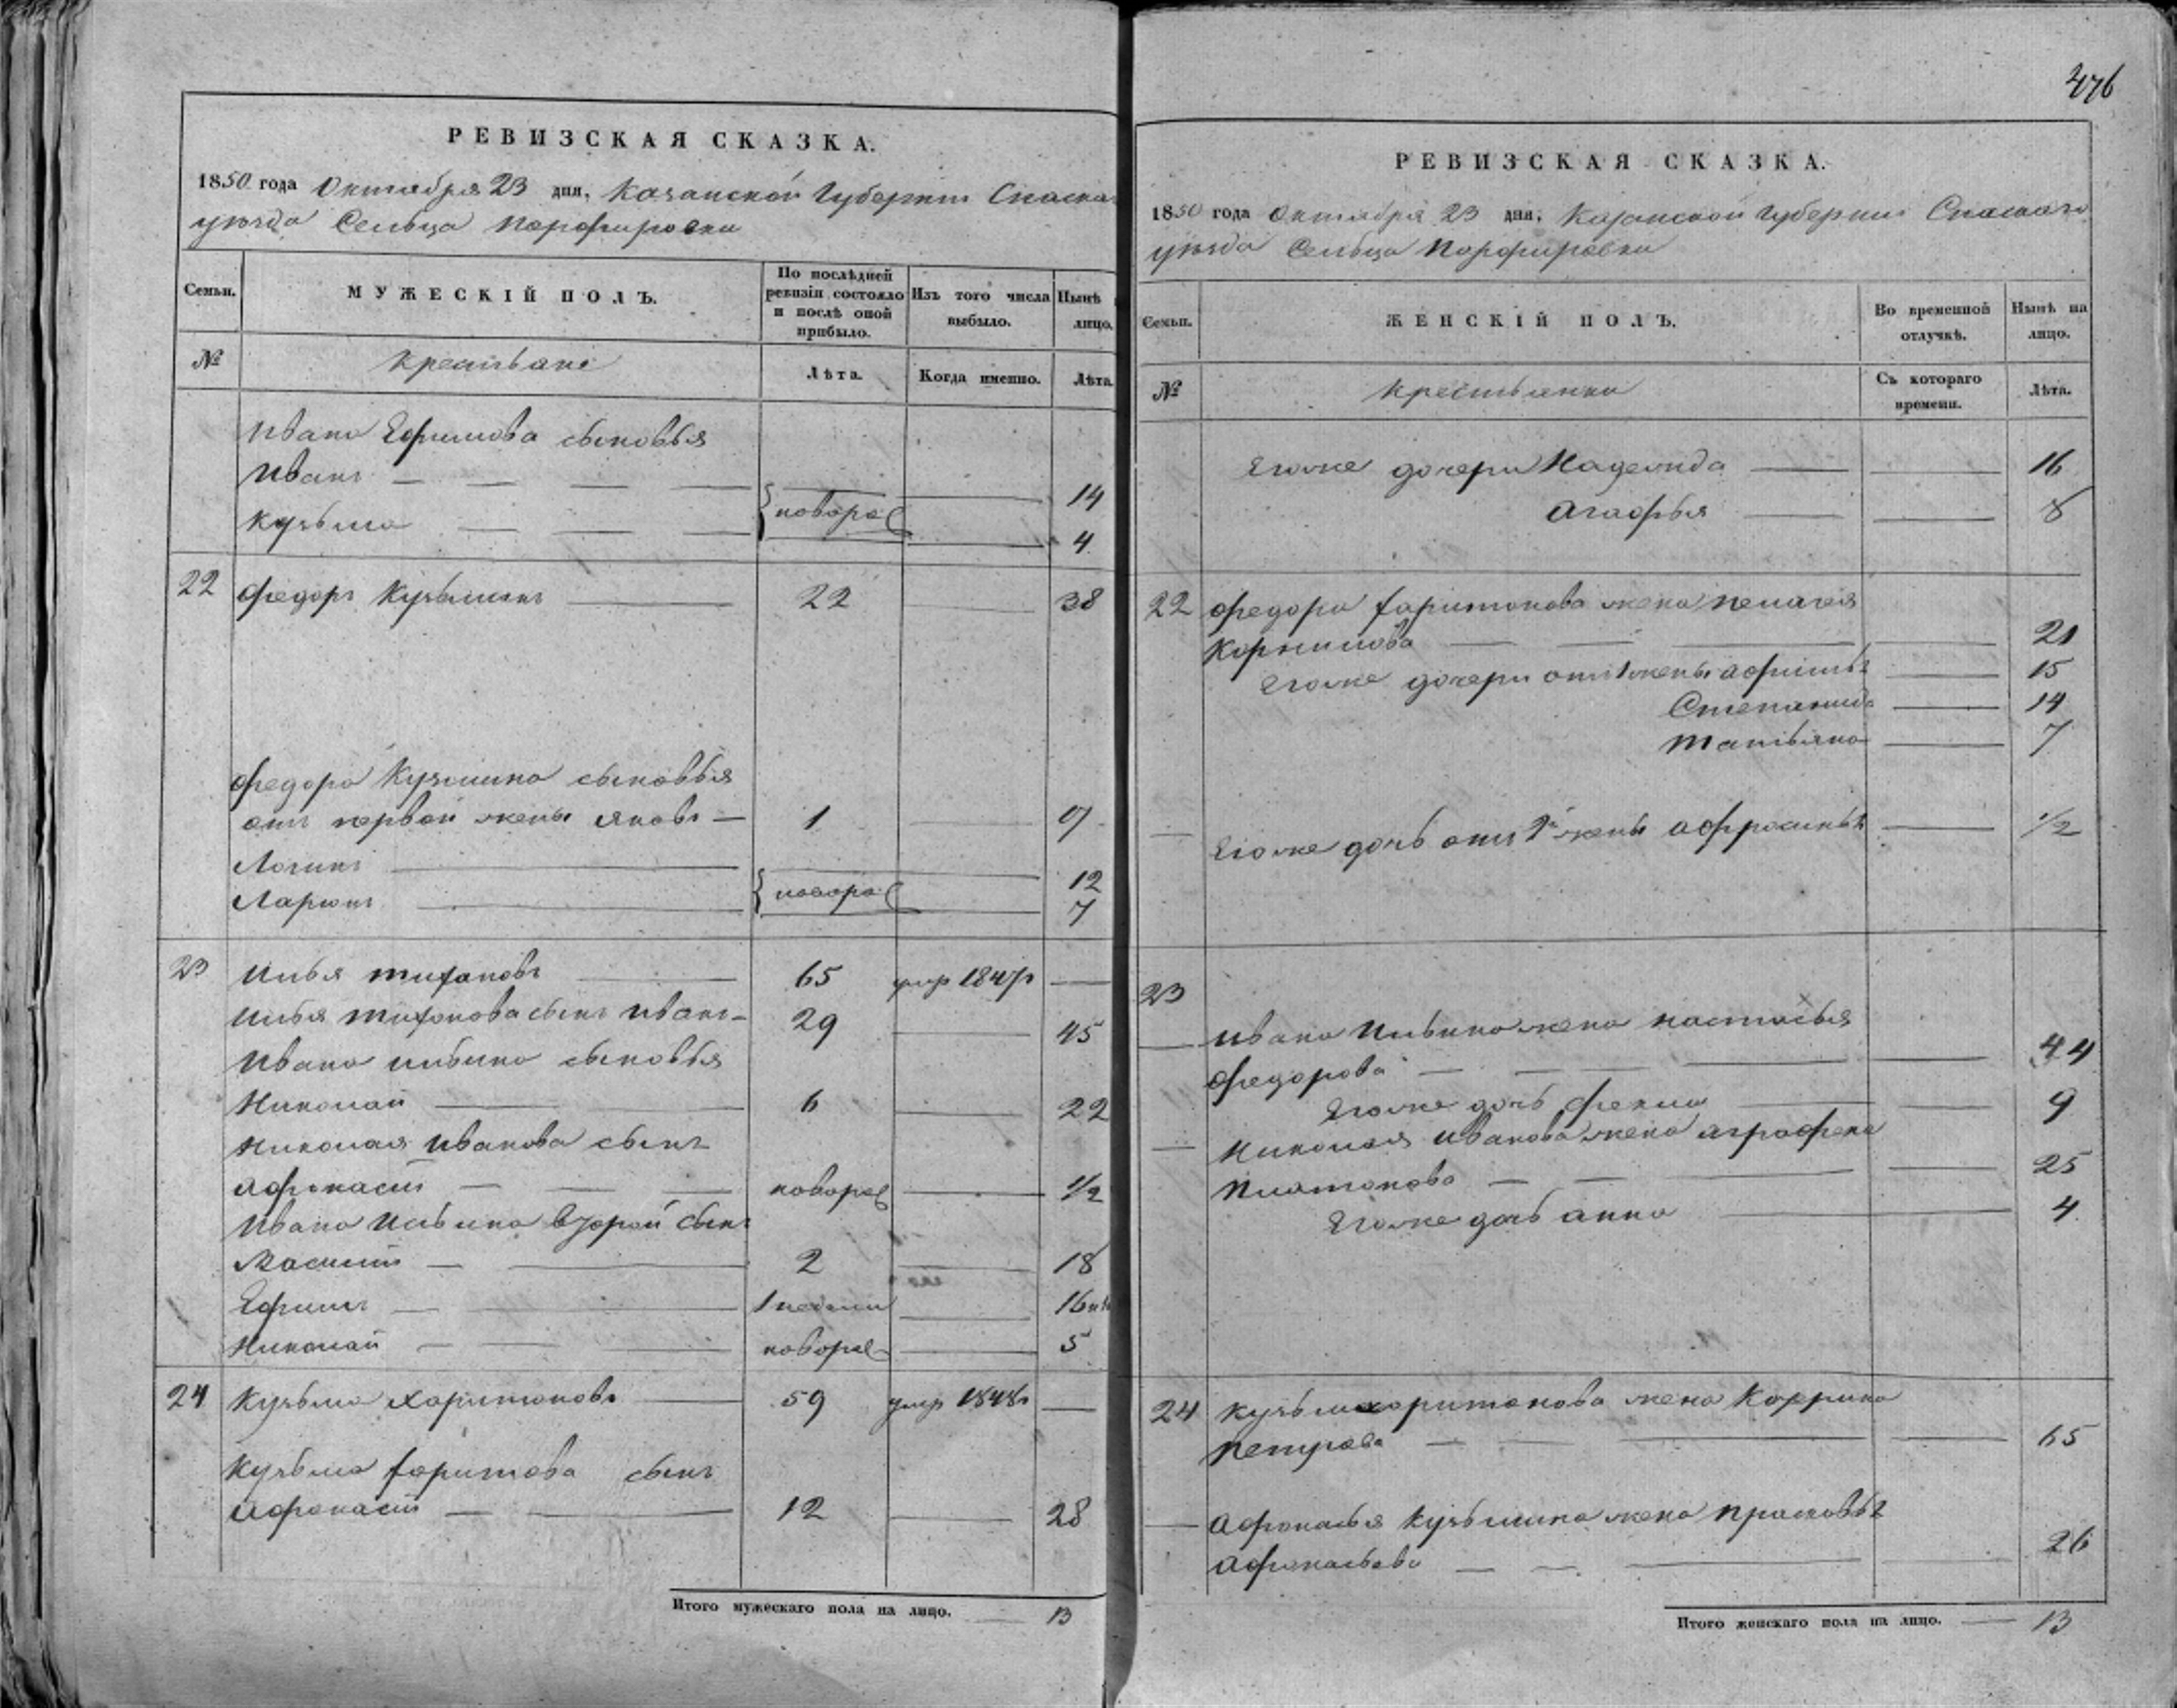 РЕВИЗСКАЯ СКАЗКА.
1850 года Октября 23 дня, Казанской Губернии Спаскаго
уѣзда Сельца Порфировки
Семьи. МУЖЕСКІЙ ПОЛЪ. По послѣдней ревизіи состояло и послѣ оной прибыло. Изъ того числа выбыло. Нынѣ на лицо.
№ Крестьяне Лѣта. Когда именно. Лѣта.
Ивана Ефимова сыновья
Иванъ 14
Кузьма новоро 4
22 Федоръ Кузьминъ 22 38
Федора Кузмина сыновья
отъ первой жены Яковъ 1 17
Логинъ 12
Ларионъ новоро 7
23 Илья Тихановъ 65 умр 1847г
Илья Тиханова сынъ Иванъ 29 45
Ивана Ильина сыновья
Николай 6 22
Николая Иванова сынъ
Афонасий новоро 1/2
Ивана Ильина второй сынъ
Максим 2 18
Ефимъ 1 недели 16
Николай новоро 5
24 Кузьма Харитоновъ 59 умр 1848г
Кузьма Харитова сынъ
Афонасий 12 28
Итого мужескаго пола на лицо. 13
476
РЕВИЗСКАЯ СКАЗКА.
1850 года Октября 23 дня, Казанской Губернии Спаскаго
уѣзда Сельца Порфировки
Семьи. ЖЕНСКІЙ ПОЛЪ. Во временной отлучкѣ. Нынѣ на лицо.
№ Крестьянки Съ котораго времени. Лѣта.
Егоже дочери Надежда 16
Агафья 8
22 Федора Харитонова жена Пелагея
Корнилова 21
Егоже дочери от 1 жены 15
Степанида 14
Татьяна 7
Егоже дочь отъ 2й жены Афросинья 1/2
23
Ивана Ильина жена Настасья
Федорова 44
Егоже дочь Фекла 9
Николая Иванова жена Аграфена
Платонова 25
Егоже дочь Анна 4
24 Кузьма Харитонова жена
Петрова 65
Афонасья Кузьмина жена Прасковья
Афонасьева 26
Итого женскаго пола на лицо. 13